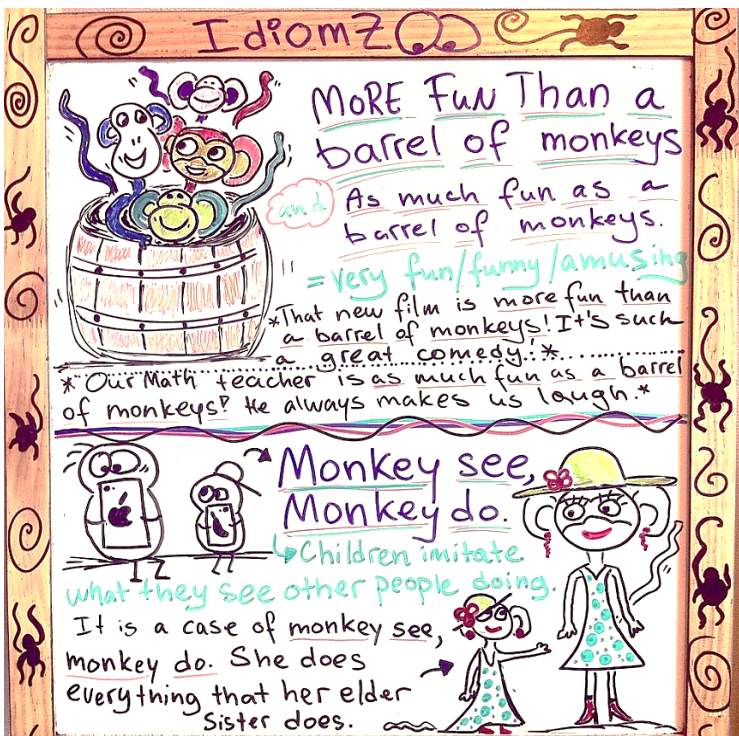 IdiomZoo
MoRE FuN Than a
barrel of monkeys
and As much fun as a
barrel of monkeys.
= very fun/funny/amusing
*That new film is more fun than
a barrel of monkeys! It's such
a great comedy!*
*Our Math teacher is as much fun as a barrel
of monkeys! He always makes us laugh.*
Monkey see,
Monkey do.
Children imitate
what they see other people doing.
It is a case of monkey see,
monkey do. She does
everything that her elder
Sister does.